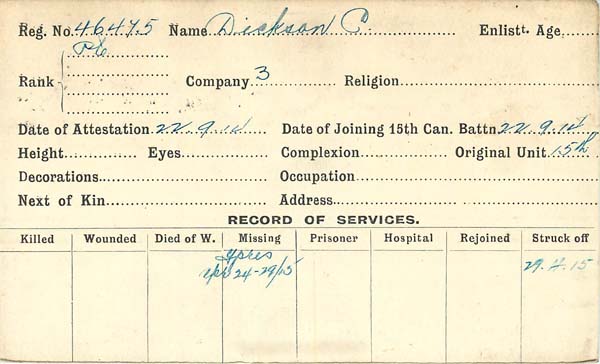 Reg. No. 46475 Name Dickson C. Enlistt. Age
Pte
Rank Company 3 Religion
Date of Attestation 22.9.14 Date of Joining 15th Can. Battn 22.9.14
Height Eyes Complexion Original Unit 15th
Decorations Occupation
Next of Kin Address
RECORD OF SERVICES.
Killed Wounded Died of W. Missing Prisoner Hospital Rejoined Struck off
Ypres
Apr 24-29/15 29.4.15